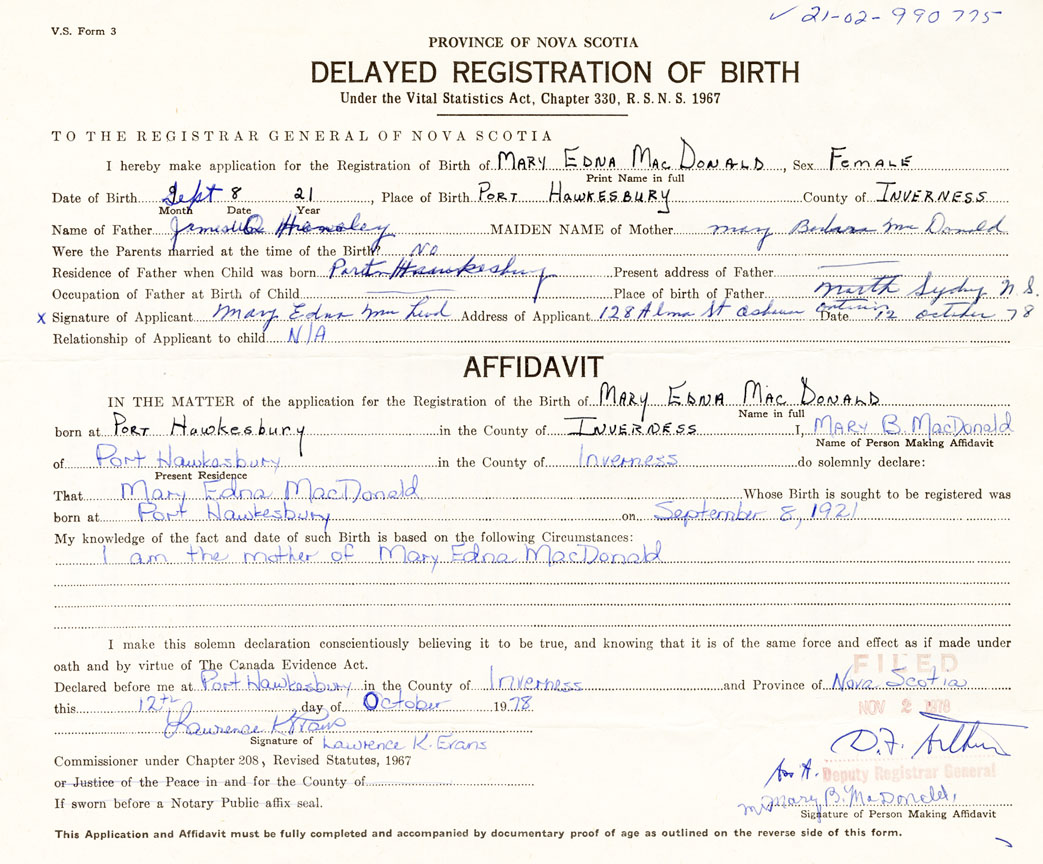 ✓ 21-02-990775
V.S. Form 3
PROVINCE OF NOVA SCOTIA
DELAYED REGISTRATION OF BIRTH
Under the Vital Statistics Act, Chapter 330, R.S.N.S. 1967
TO THE REGISTRAR GENERAL OF NOVA SCOTIA
I hereby make application for the Registration of Birth of MARY EDNA MacDONALD, Sex FEMALE
Print Name in full
Date of Birth Sept 8 21, Place of Birth PORT HAWKESBURY County of INVERNESS
Month Date Year
Name of Father MAIDEN NAME of Mother Mary McDonald
Were the Parents married at the time of the Birth? NO
Residence of Father when Child was born Port Hawkesbury Present address of Father
Occupation of Father at Birth of Child Place of birth of Father North Sydny N.S.
X Signature of Applicant Mary Edna Address of Applicant 128 Alma St Ontario Date 12 october 78
Relationship of Applicant to child N/A
AFFIDAVIT
IN THE MATTER of the application for the Registration of the Birth of MARY EDNA MacDONALD
Name in full
born at PORT HAWKESBURY in the County of INVERNESS I, MARY B. MacDonald
Name of Person Making Affidavit
of Port Hawkesbury in the County of Inverness do solemnly declare:
Present Residence
That Mary Edna MacDonald Whose Birth is sought to be registered was
born at Port Hawkesbury on September 8, 1921
My knowledge of the fact and date of such Birth is based on the following Circumstances:
I am the mother of Mary Edna MacDonald
I make this solemn declaration conscientiously believing it to be true, and knowing that it is of the same force and effect as if made under
oath and by virtue of The Canada Evidence Act.
FILED
Declared before me at Port Hawkesbury in the County of Inverness and Province of Nova Scotia
this 12th day of October 1978
NOV 2 1978
Lawrence K Evans
Signature of Lawrence K. Evans
D.F. Arthur
Commissioner under Chapter 208, Revised Statutes, 1967
Deputy Registrar General
or Justice of the Peace in and for the County of
Mary B. MacDonald,
If sworn before a Notary Public affix seal.
Signature of Person Making Affidavit
This Application and Affidavit must be fully completed and accompanied by documentary proof of age as outlined on the reverse side of this form.